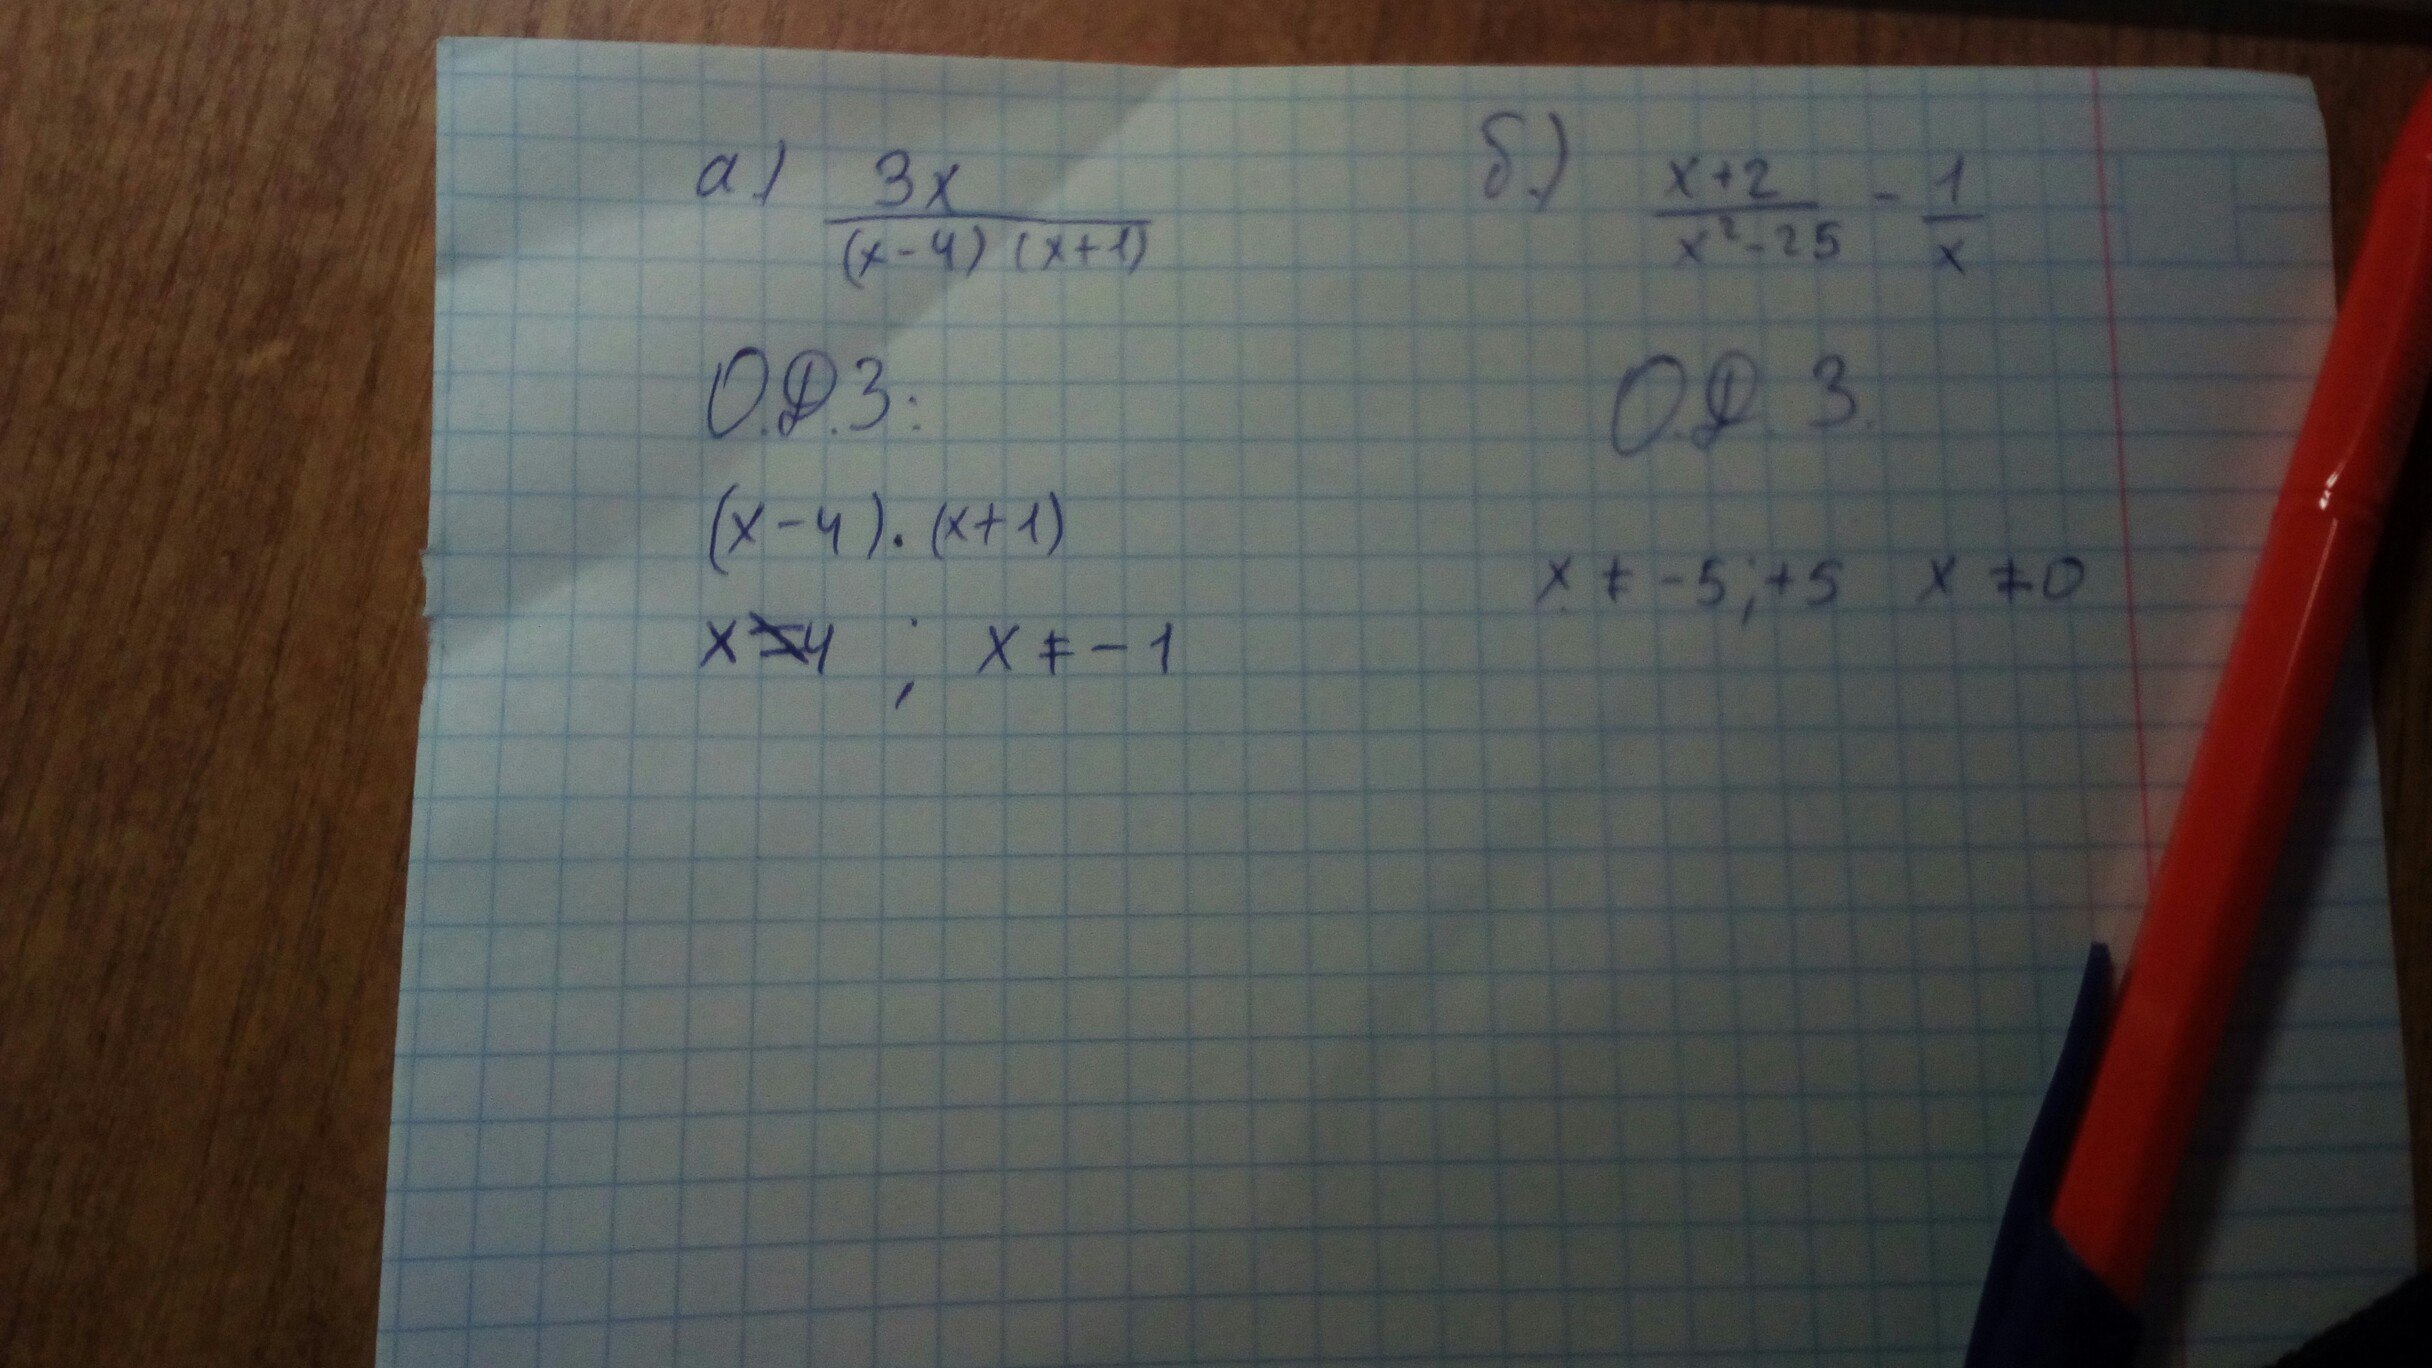 а) 3x / (x-4) (x+1)
О.Д.З:
(x-4) · (x+1)
x ≠ 4 ; x ≠ -1
б) x+2 / x²-25 - 1 / x
О.Д.З.
x ≠ -5; +5 x ≠ 0